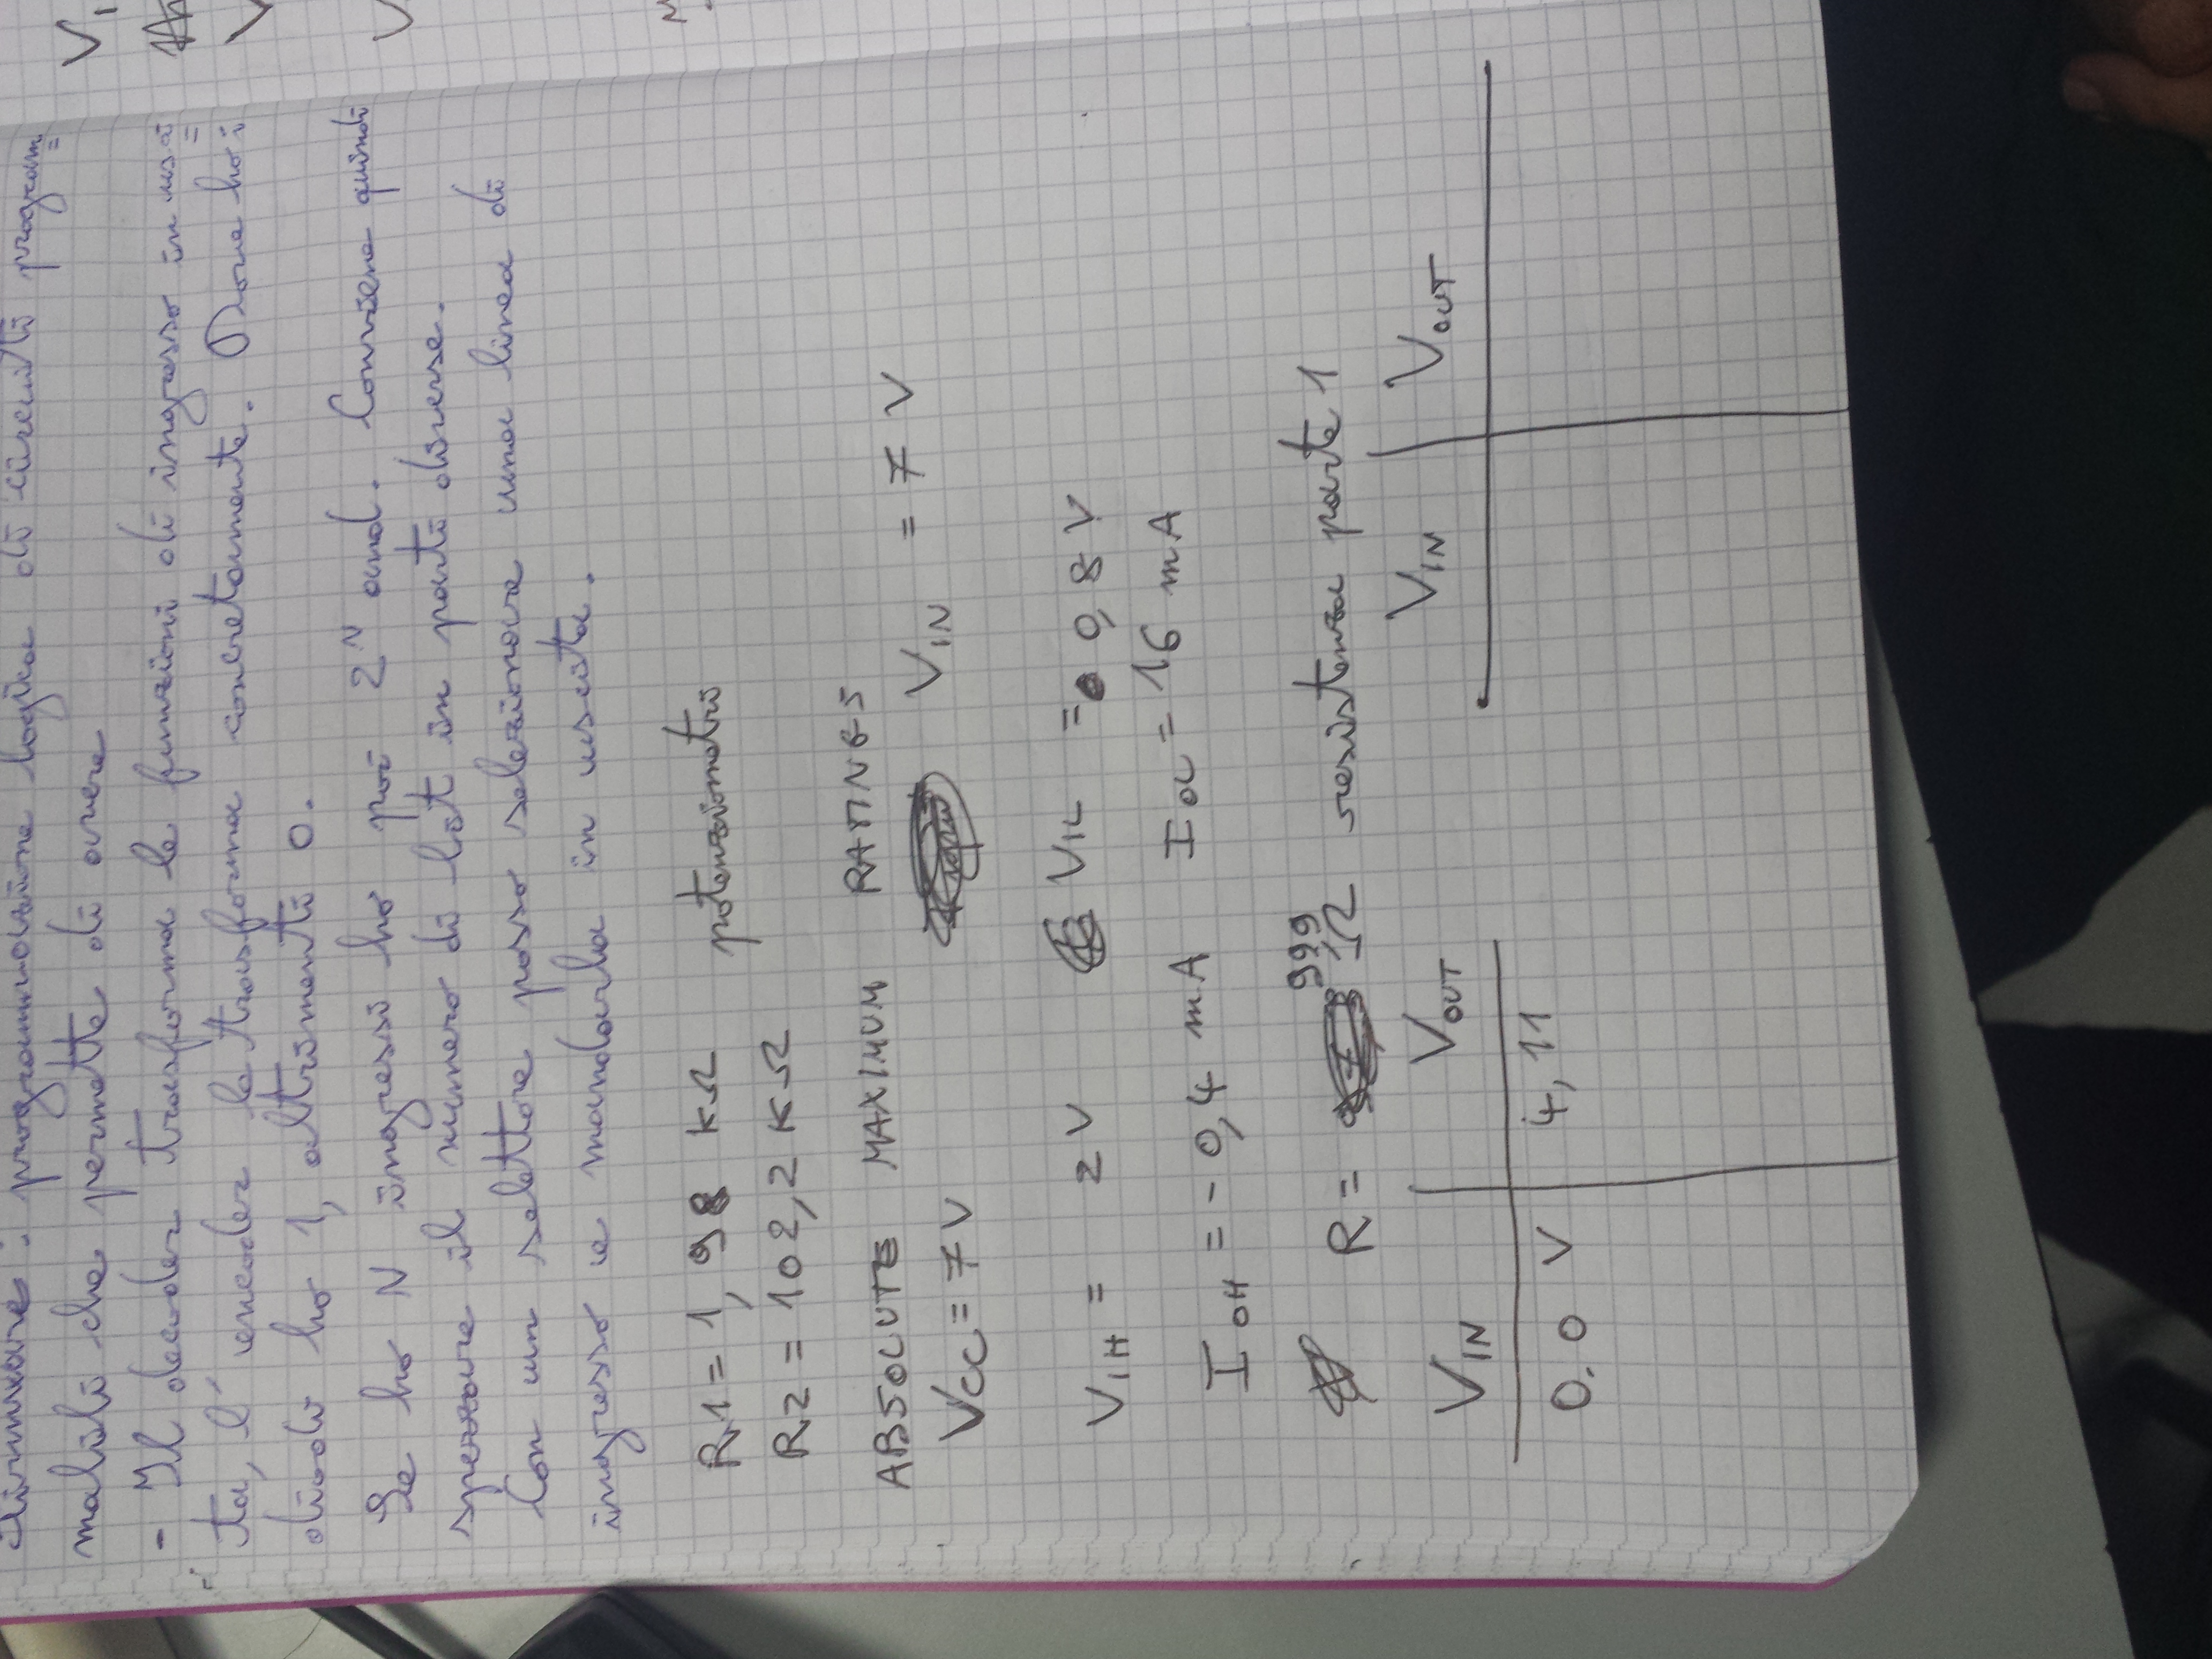 Firmware : programmazione logica di circuiti program=
mabili che permette di avere
- Il decoder trasforma le funzioni di ingresso in usci=
ta, l'encoder le trasforma concretamente. Dove ho i
diodi ho 1, altrimenti 0.
Se ho N ingressi ho poi 2^N and. Conviene quindi
spezzare il numero di bit in parti diverse.
Con un selettore posso selezionare una linea di
ingresso e mandarla in uscita.
R1 = 1,98 KΩ potenziometri
R2 = 102,2 KΩ
ABSOLUTE MAXIMUM RATINGS
VCC = 7V VIN = 7 V
VIH = 2V VIL = 0,8 V
IOH = -0,4 mA IOL = 16 mA
R = 99,9 Ω resistenza parte 1
VIN VOUT VIN VOUT
0.0 V 4,11